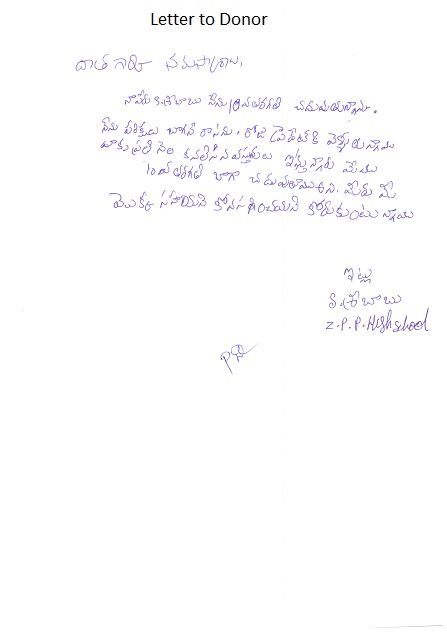 Letter to Donor
దాత గారికి నమస్కారాలు,
నా పేరు కె.శ్రీబాబు నేను 10వ తరగతి చదువుతున్నాను.
నేను పరీక్షలు బాగానే రాసాను. రోజు ప్రైవేట్‌కి వెళ్తున్నాను
మాకు ప్రతి నెల కావలసిన వస్తువులు ఇస్తున్నారు మేము
10వ తరగతి బాగా చదువుతాము అని. మీరు మీ
యొక్క సహాయాన్ని కొనసాగించాలని కోరుకుంటున్నాను
ఇట్లు
కె.శ్రీబాబు
Z.P.P. High school